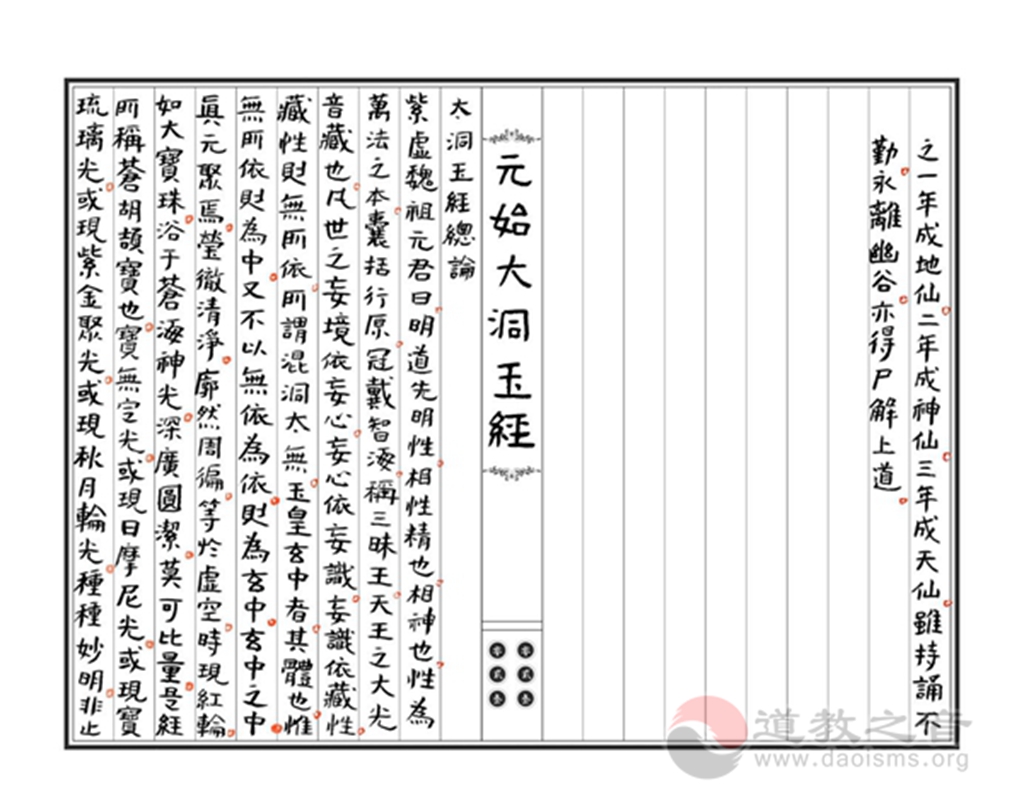 之一年成地仙二年成神仙三年成天仙雖持誦不
勤永離幽谷亦得尸解上道
元始大洞玉經
零零
貳貳
叁叁
大洞玉經總論
紫虛魏祖元君曰明道先明性相性精也相神也性為
萬法之本囊括行原冠戴智海稱三昧王天王之大光
音藏也凡世之妄境依妄心妄心依妄識妄識依藏性
藏性則無所依所謂混洞太無玉皇玄中者其體也惟
無所依則為中又不以無依為依則為玄中玄中之中
真元聚焉瑩徹清淨廓然周徧等於虛空時現紅輪
如大寶珠浴于蒼海神光深廣圓潔莫可比量是經
所稱蒼胡頡寶也寶無定光或現日摩尼光或現寶
琉璃光或現紫金聚光或現秋月輪光種種妙明非止
道教之音
www.daoisms.org